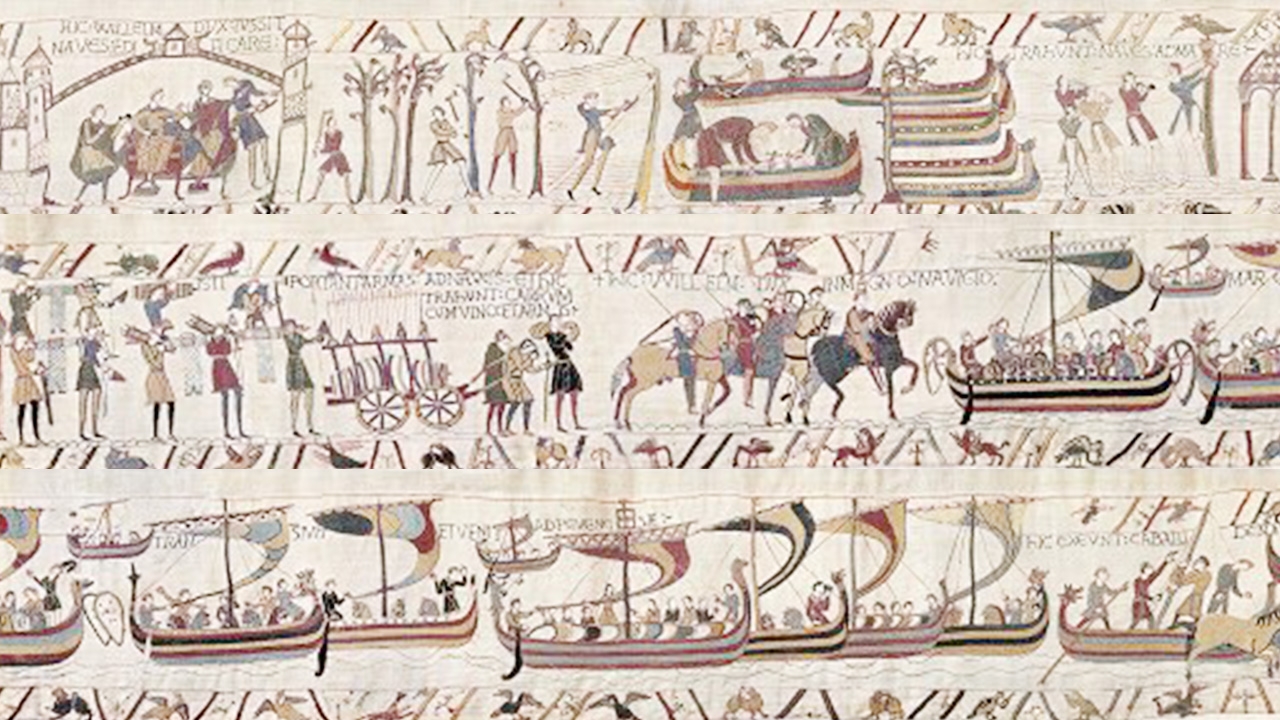 HIC WILLELM DUX IUSSIT
NAVES EDI FICARE:
HIC TRAHUNT: NAVES: AD MA RE:
ISTI PORTANT: ARMAS: AD NAVES: ET HIC
TRAHUNT: CARRUM
CUM VINO: ET ARMIS:
+ HIC: WILLELM: DUX IN MAGNO: NAVIGIO:
MAR E
TRAN SIVIT ET VENIT AD PEVENE SÆ:
HIC EXEUNT: CABALLI DE